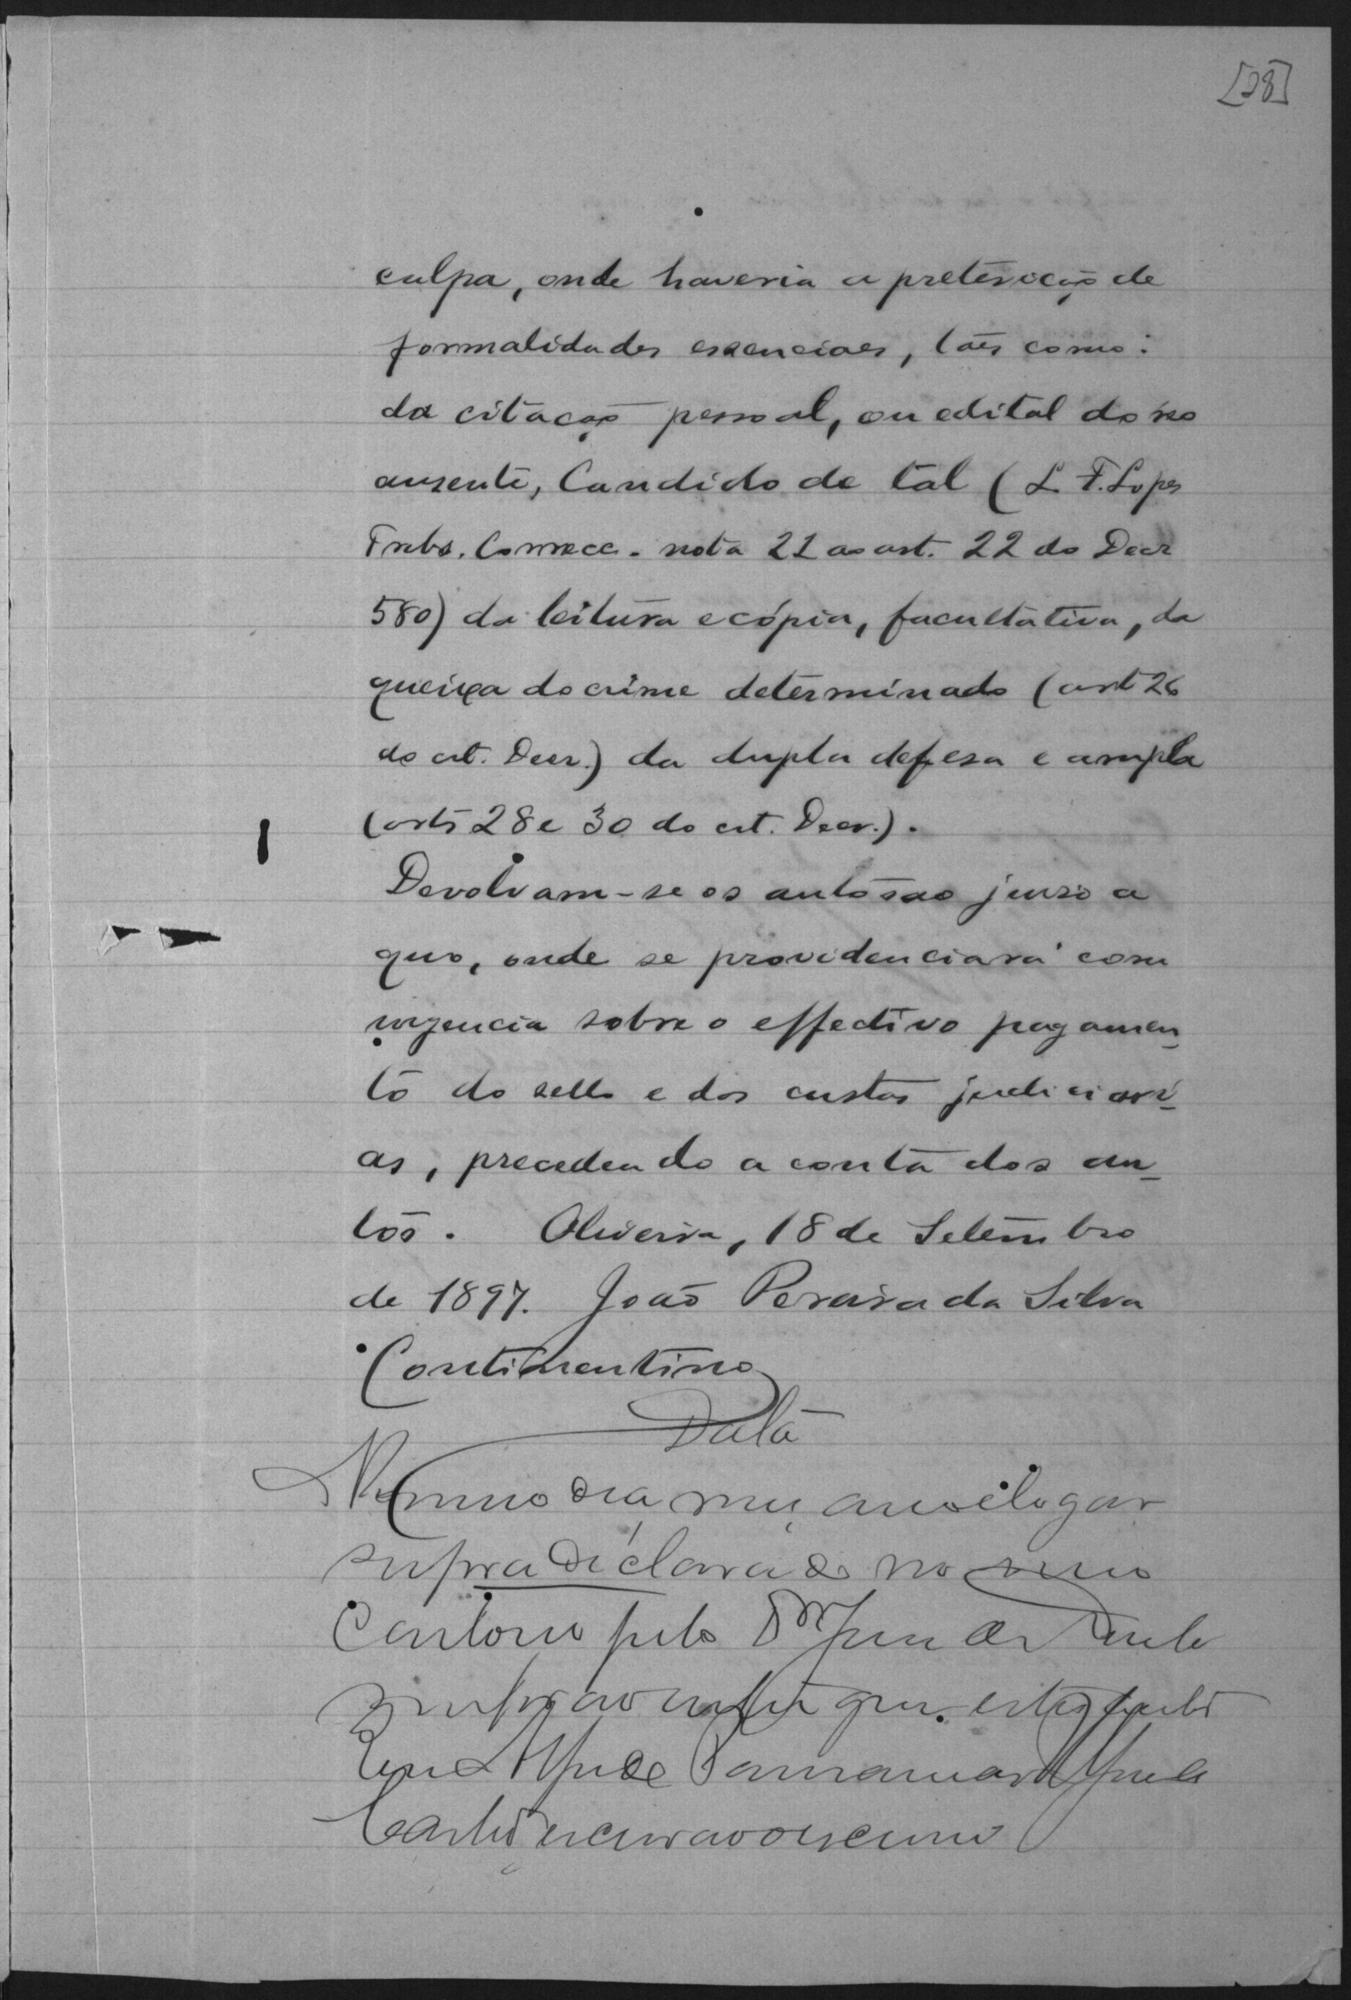 [28]
culpa, onde haveria a preterição de
formalidades essenciaes, táes como:
da citação pessoal, ou edital do réo
ausente, Candido de tal (L. F. Lopes
Tribs. Correcc. nota 21 ao art. 22 do Decr
580) da leitura e cópia, facultativa, da
queixa do crime determinado (art 26
do cit. Decr.) da dupla defesa e ampla
(arts 28 e 30 do cit. Decr.).
Devolvam-se os autos ao juizo a
quo, onde se providenciará com
urgencia sobre o effectivo pagamen-
to do sello e das custas judiciari-
as, precedendo a conta dos au-
tos. Oliveira, 18 de Setembro
de 1897. João Pereira da Silva
Continentino
Data
No mesmo dia mez anno e logar
supra declarado no meu
Cartorio pelo Dr Juiz de
que estes
Eu
escrivão o escrevi